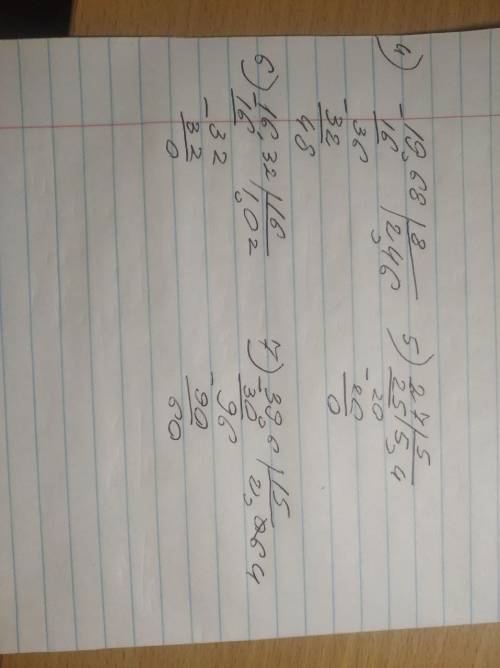 4) -19,68 | 8
16 2,46
-36
32
48
5) 27 | 5
25 5,4
-20
20
0
6) -16,32 | 16
16 1,02
-32
32
0
7) -39,6 | 15
30 2,64
96
-90
60